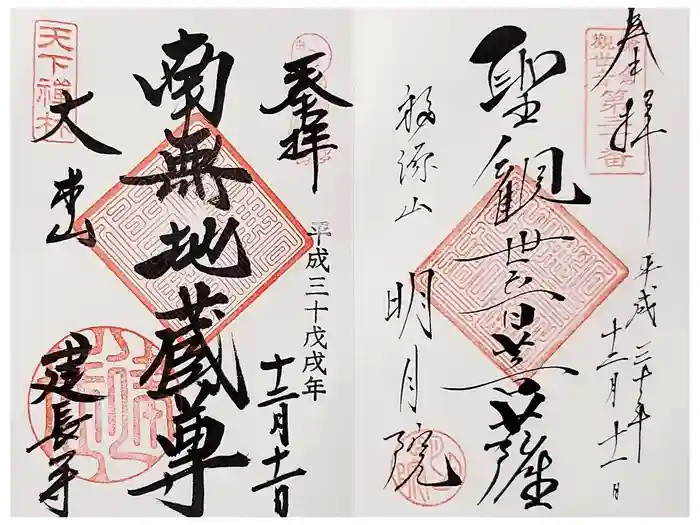 奉拝
観世音第三十番
聖観世音菩薩
平成三十年
十二月十一日
福源山
明月院
奉拝
平成三十戊戌年
十二月十一日
南無地蔵尊
天下禅林
大本山
建長寺